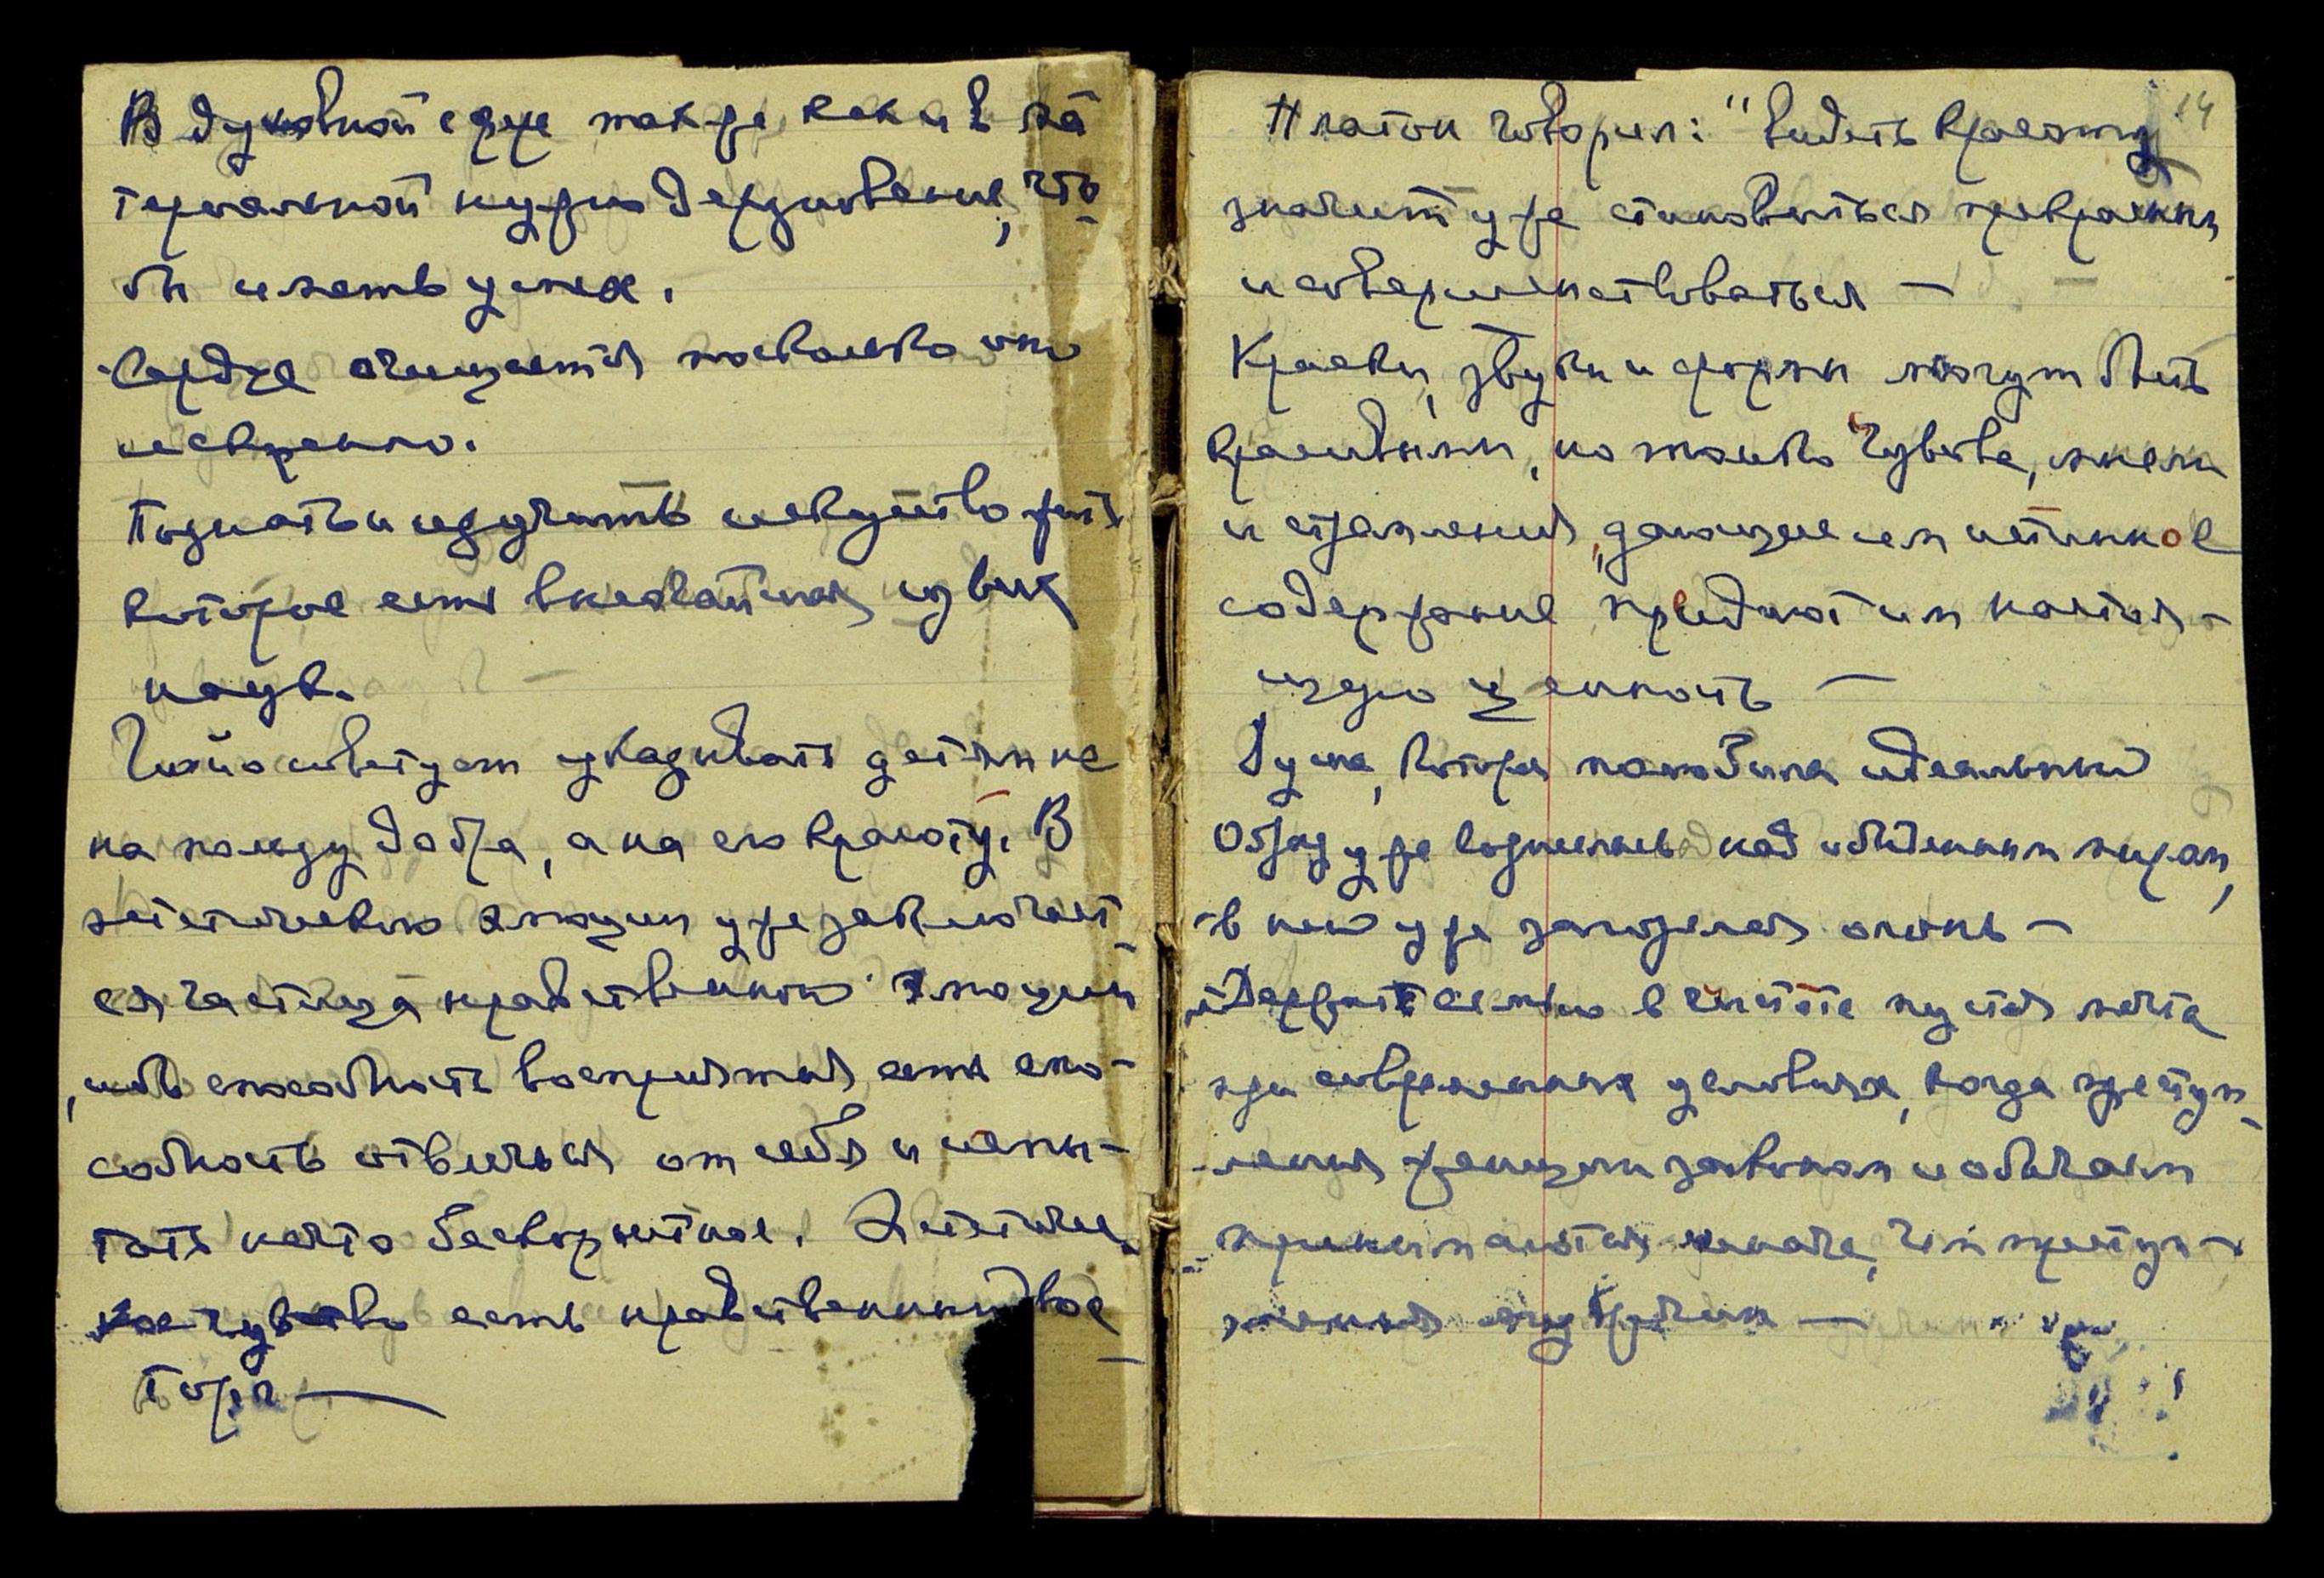 В духовной сфере также как и в ма
териальной нужно дерзновение, что-
бы иметь успех.
Сердце очищается поскольку оно
искренно.
Познать и изучить искусство жить
которое есть высочайшая из всех
наук.
Гюйо советует указывать детям не
на пользу добра, а на его красоту. В
эстетической эмоции уже заключает-
ся частица нравственной эмоции
, ибо способность восприятия есть спо-
собность отвлечься от себя и испы-
тать нечто бескорыстное. Эстетичес-
кое чувство есть нравственный вос-
торг —
14
Платон говорил: "видеть красоту
значит уже становиться прекрасным
и совершенствоваться —
Краски, звуки и формы могут быть
красивыми, но только чувства, мысли
и стремления, дающие им истинное
содержание придают им настоя-
щую ценность —
Душа, которая полюбила идеальный
образ уже вознеслась над обыденным миром,
в ней уже загорелся огонь —
Держать семью в чистоте пустая мечта
при современных условиях, когда преступ-
ления женщин законом и обычаем
принимаются иначе, чем преступ-
ления мужчин —